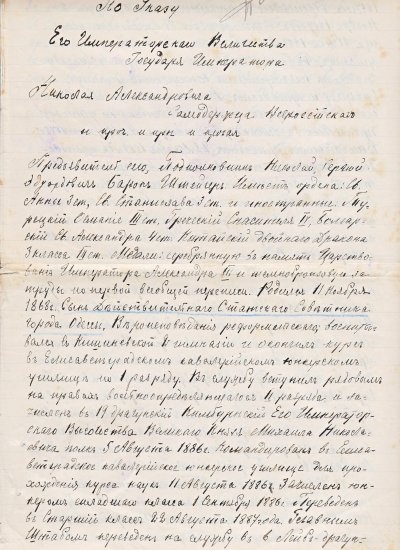 По Указу
Его Императорскаго Величества
Государя Императора
Николая Александровича
Самодержца Всероссійскаго
и проч и проч и прочая
Предъявитель его, Подполковникъ Николай,
Баронъ имѣетъ ордена: Св.
Анны 3 ст, Св. Станислава 3 ст. и иностранные: Ту-
рецкій Османіе III ст, Греческій Спасителя IV, Болгар-
скій Св. Александра 4 ст. Китайскій двойнаго Дракона
3 класса ст. Медали: серебрянную въ память Царство-
ванія Императора Александра III и темнобронзовую за
труды по первой всеобщей переписи. Родился 11 Ноября
1868 г. Сынъ Дѣйствительнаго Статскаго Совѣтника
города Одессы, Вѣроисповѣданія реформатскаго, воспиты-
вался въ Кишиневской гимназіи и окончилъ курсъ
въ Елисаветградскомъ кавалерійскомъ юнкерскомъ
училищѣ по 1 разряду. Въ службу вступилъ рядовымъ
на правахъ вольноопредѣляющагося II разряда и за-
численъ въ Драгунскій Кинбурнскій Его Император-
скаго Высочества Великаго Князя Михаила Никола-
евича полкъ 5 Августа 1886 г. Командированъ въ Елиса-
ветградское кавалерійское юнкерское училище для про-
хожденія курса наукъ 11 Августа 1886 г. Зачисленъ юн-
керомъ младшаго класса 1 Сентября 1886 г. Переведенъ
въ Старшій классъ 22 Августа 1887 года. Главнымъ
Штабомъ переведенъ на службу въ Драгун-